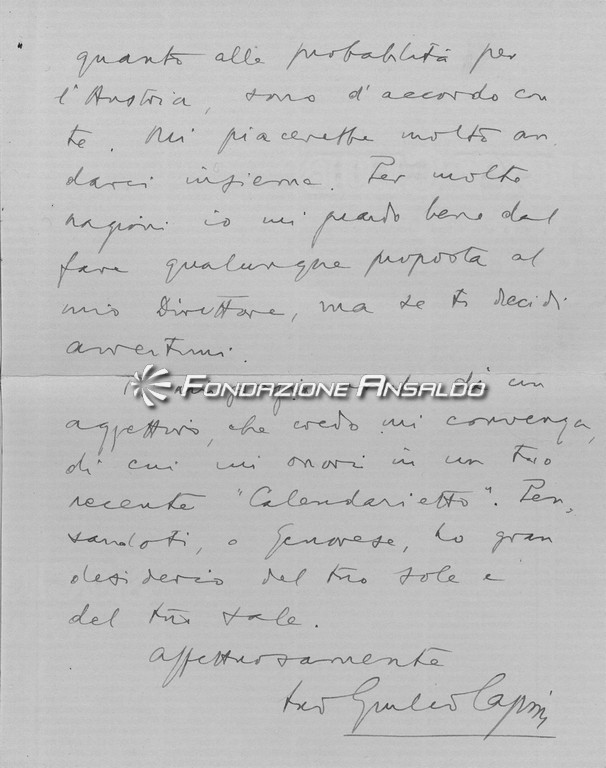 quanto alle probabilità per
l'Austria, sono d'accordo con
te. Mi piacerebbe molto an
darci insieme. Per molte
ragioni io mi guardo bene dal
fare qualunque proposta al
mio Direttore, ma se ti decidi
avvertimi.
di un
FONDAZIONE ANSALDO
aggettivo, che credo mi convenga,
di cui mi onori in un tuo
recente "Calendarietto". Pen,
sandoti, o Genovese, ho gran
desiderio del tuo sole e
del tuo sale.
affettuosamente
tuo Giulio Caprin